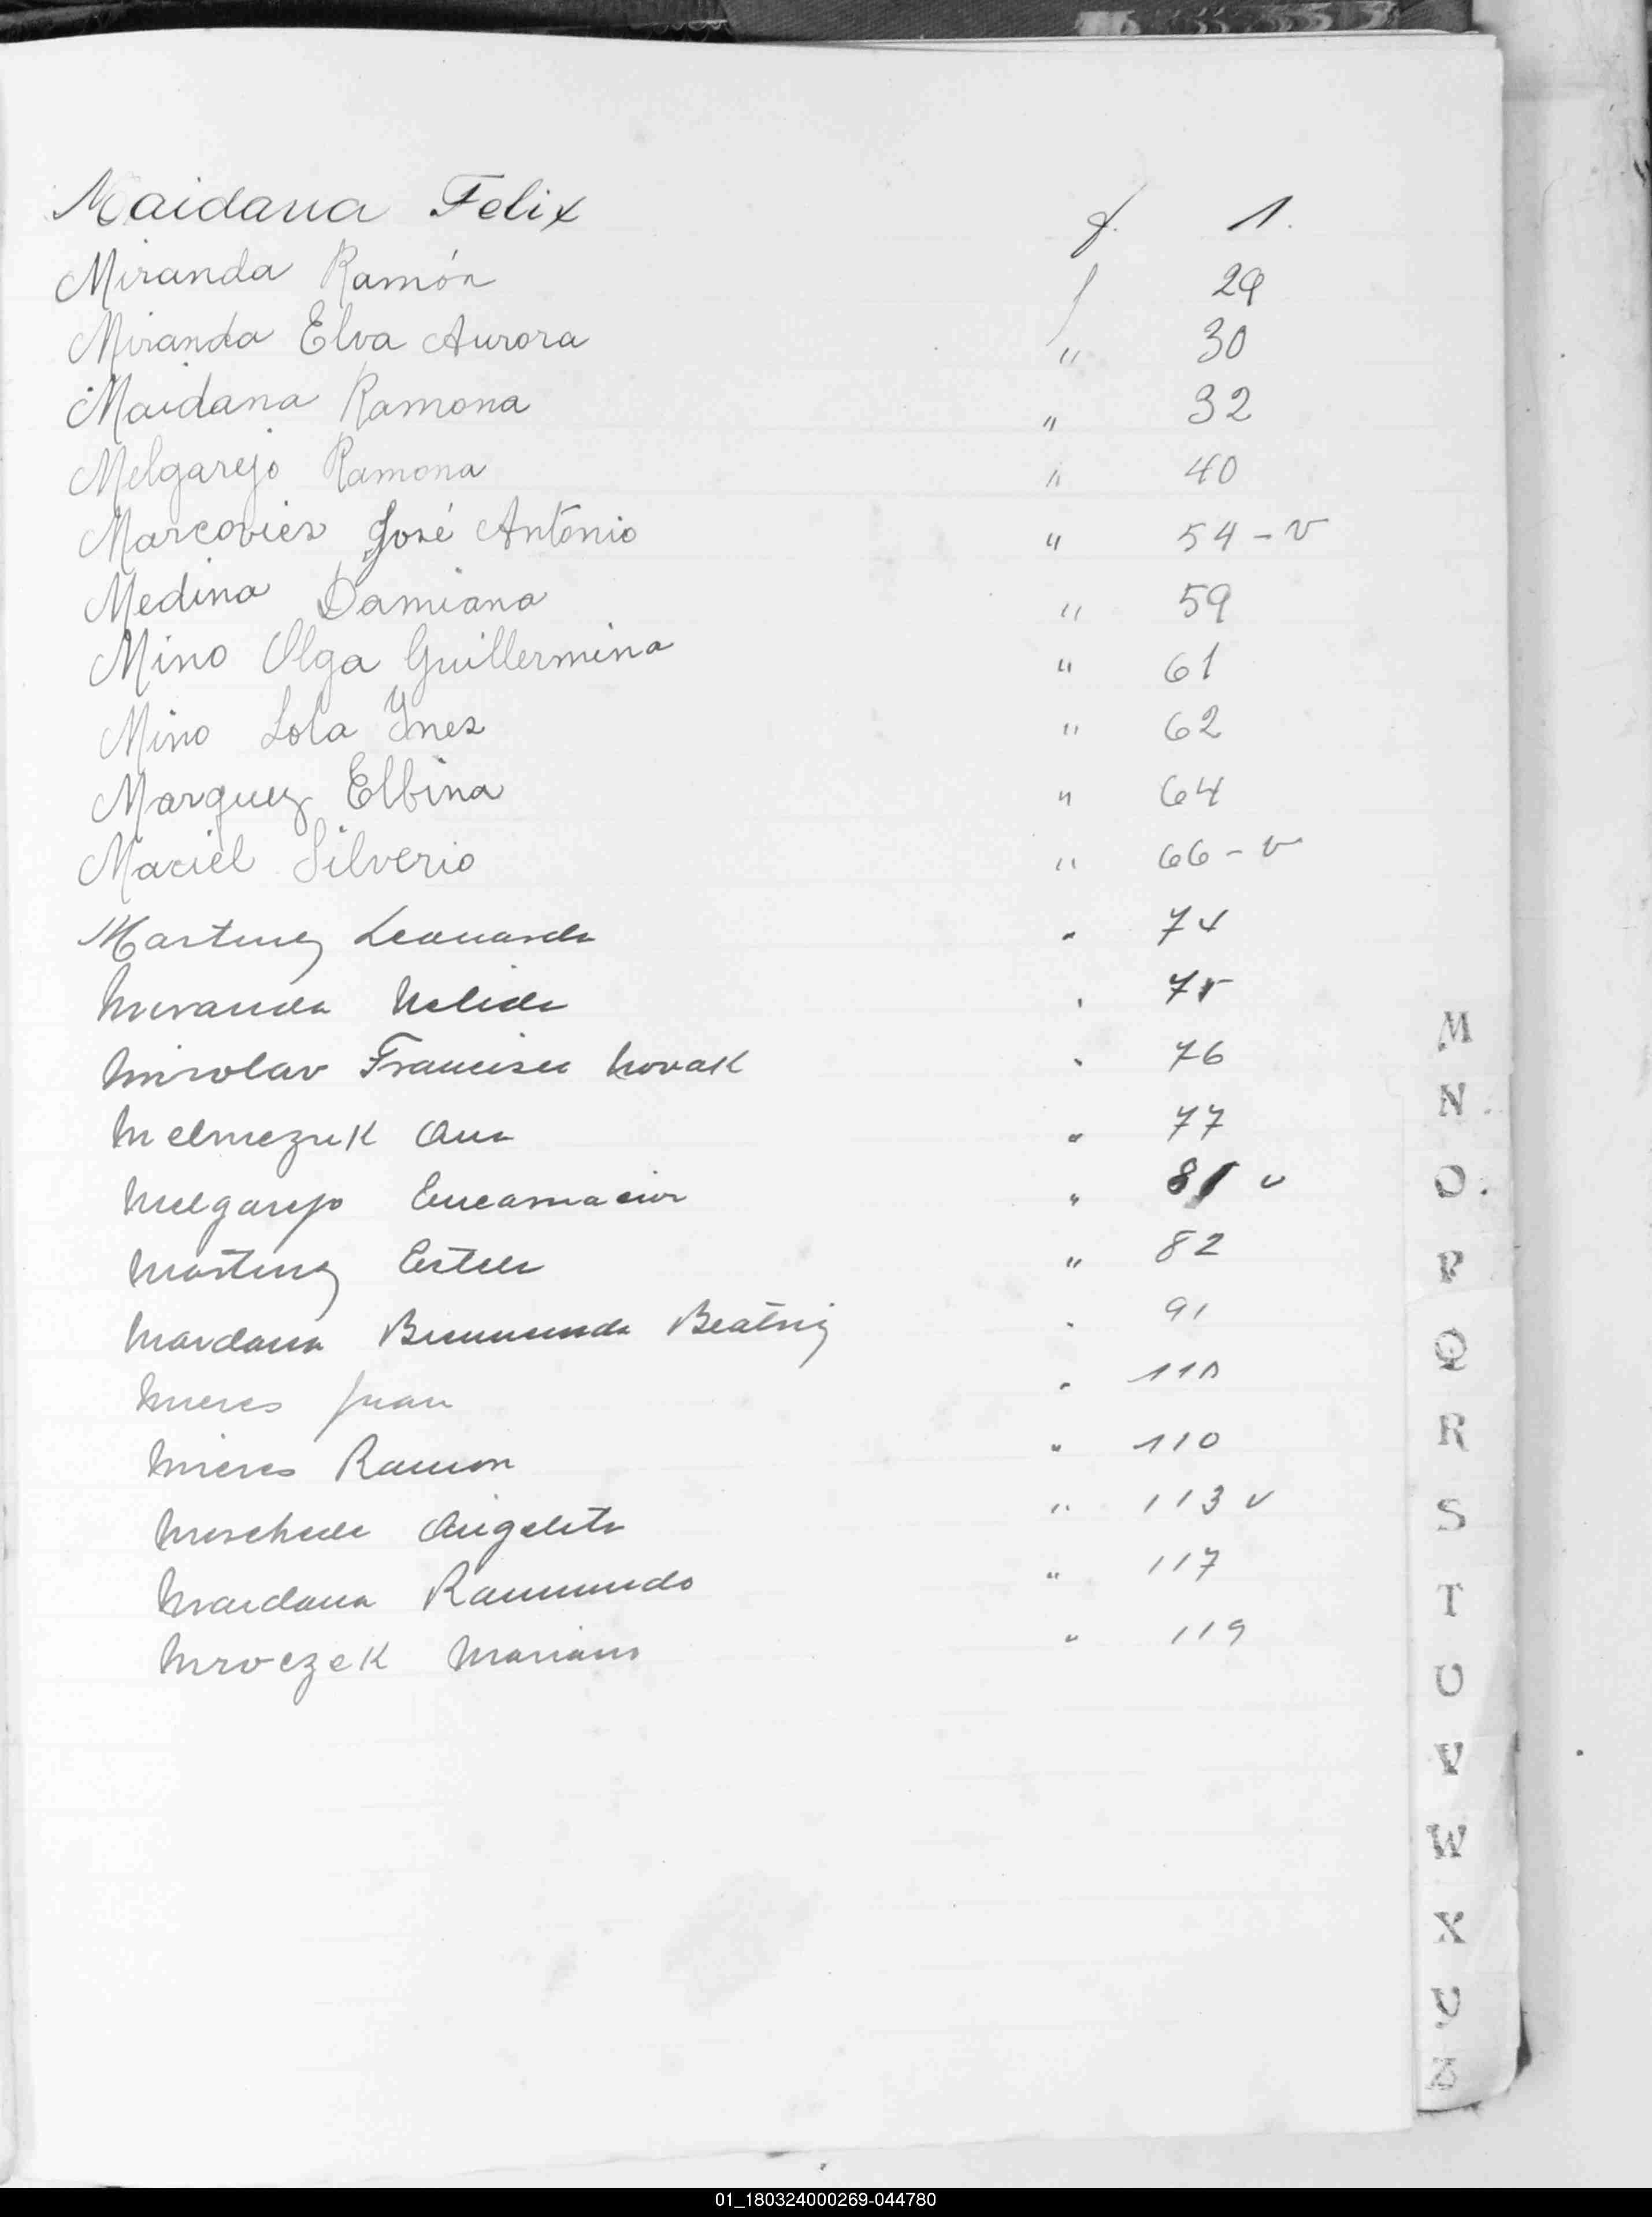 Maidana Felix f. 1.
Miranda Ramón f 29
Miranda Elva Aurora " 30
Maidana Ramona " 32
Melgarejo Ramona " 40
Marcovier José Antonio " 54-v
Medina Damiana " 59
Mino Olga Guillermina " 61
Mino Lola Ynes " 62
Marquez Elbina " 64
Maciel Silverio " 66-v
Martinez Leonarda " 74
Miranda Nelida " 75
Mirolav Francisco Novak " 76
Melniczuk Ana " 77
Melgarejo Encarnacion " 81 v
Martinez Estela " 82
Maidana Beatriz " 91
Mieres Juan " 110
Mieres Ramon " 110
Angelita " 113 v
Maidana Raimundo " 117
Mroczek Mariano " 119
M
N
O
P
Q
R
S
T
U
V
W
X
Y
Z
01_180324000269-044780